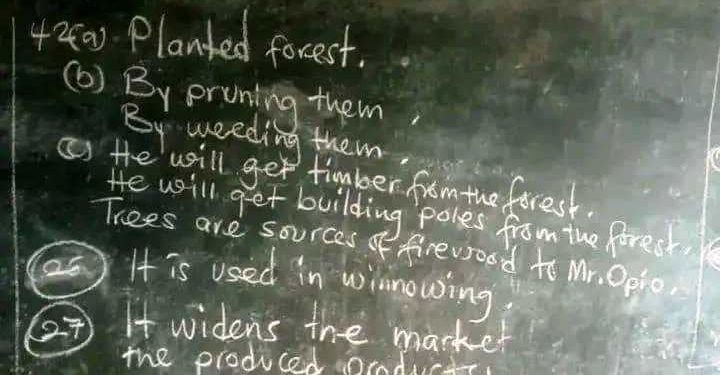 42(a). Planted forest.
(b) By pruning them,
By weeding them.
(c) He will get timber from the forest.
He will get building poles from the forest.
Trees are sources of firewood to Mr. Opio.
26 It is used in winnowing.
27 It widens the market
the produced products